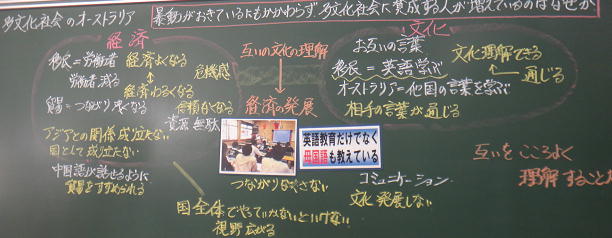 多文化社会のオーストラリア
暴動がおきているにもかかわらず、多文化社会に賛成する人が増えているのはなぜか
経済
移民=労働者 経済よくなる
労働者 減る
経済わるくなる
危機感
貿易=つながり 浅くなる
信頼なくなる
資源 無駄
アジアとの関係 成り立たない
国として成り立たない
中国語が話せるように
貿易をすすめられる
互いの文化の理解
経済の発展
文化
お互いの言葉
移民=英語学ぶ
文化理解できる
通じる
オーストラリア=他国の言葉を学ぶ
相手の言葉が通じる
英語教育だけでなく
母国語も教えている
つながりなくさない
コミュニケーション
文化 発展しない
国全体でやっていかないといけない
視野 広める
互いをこころよく
理解すること